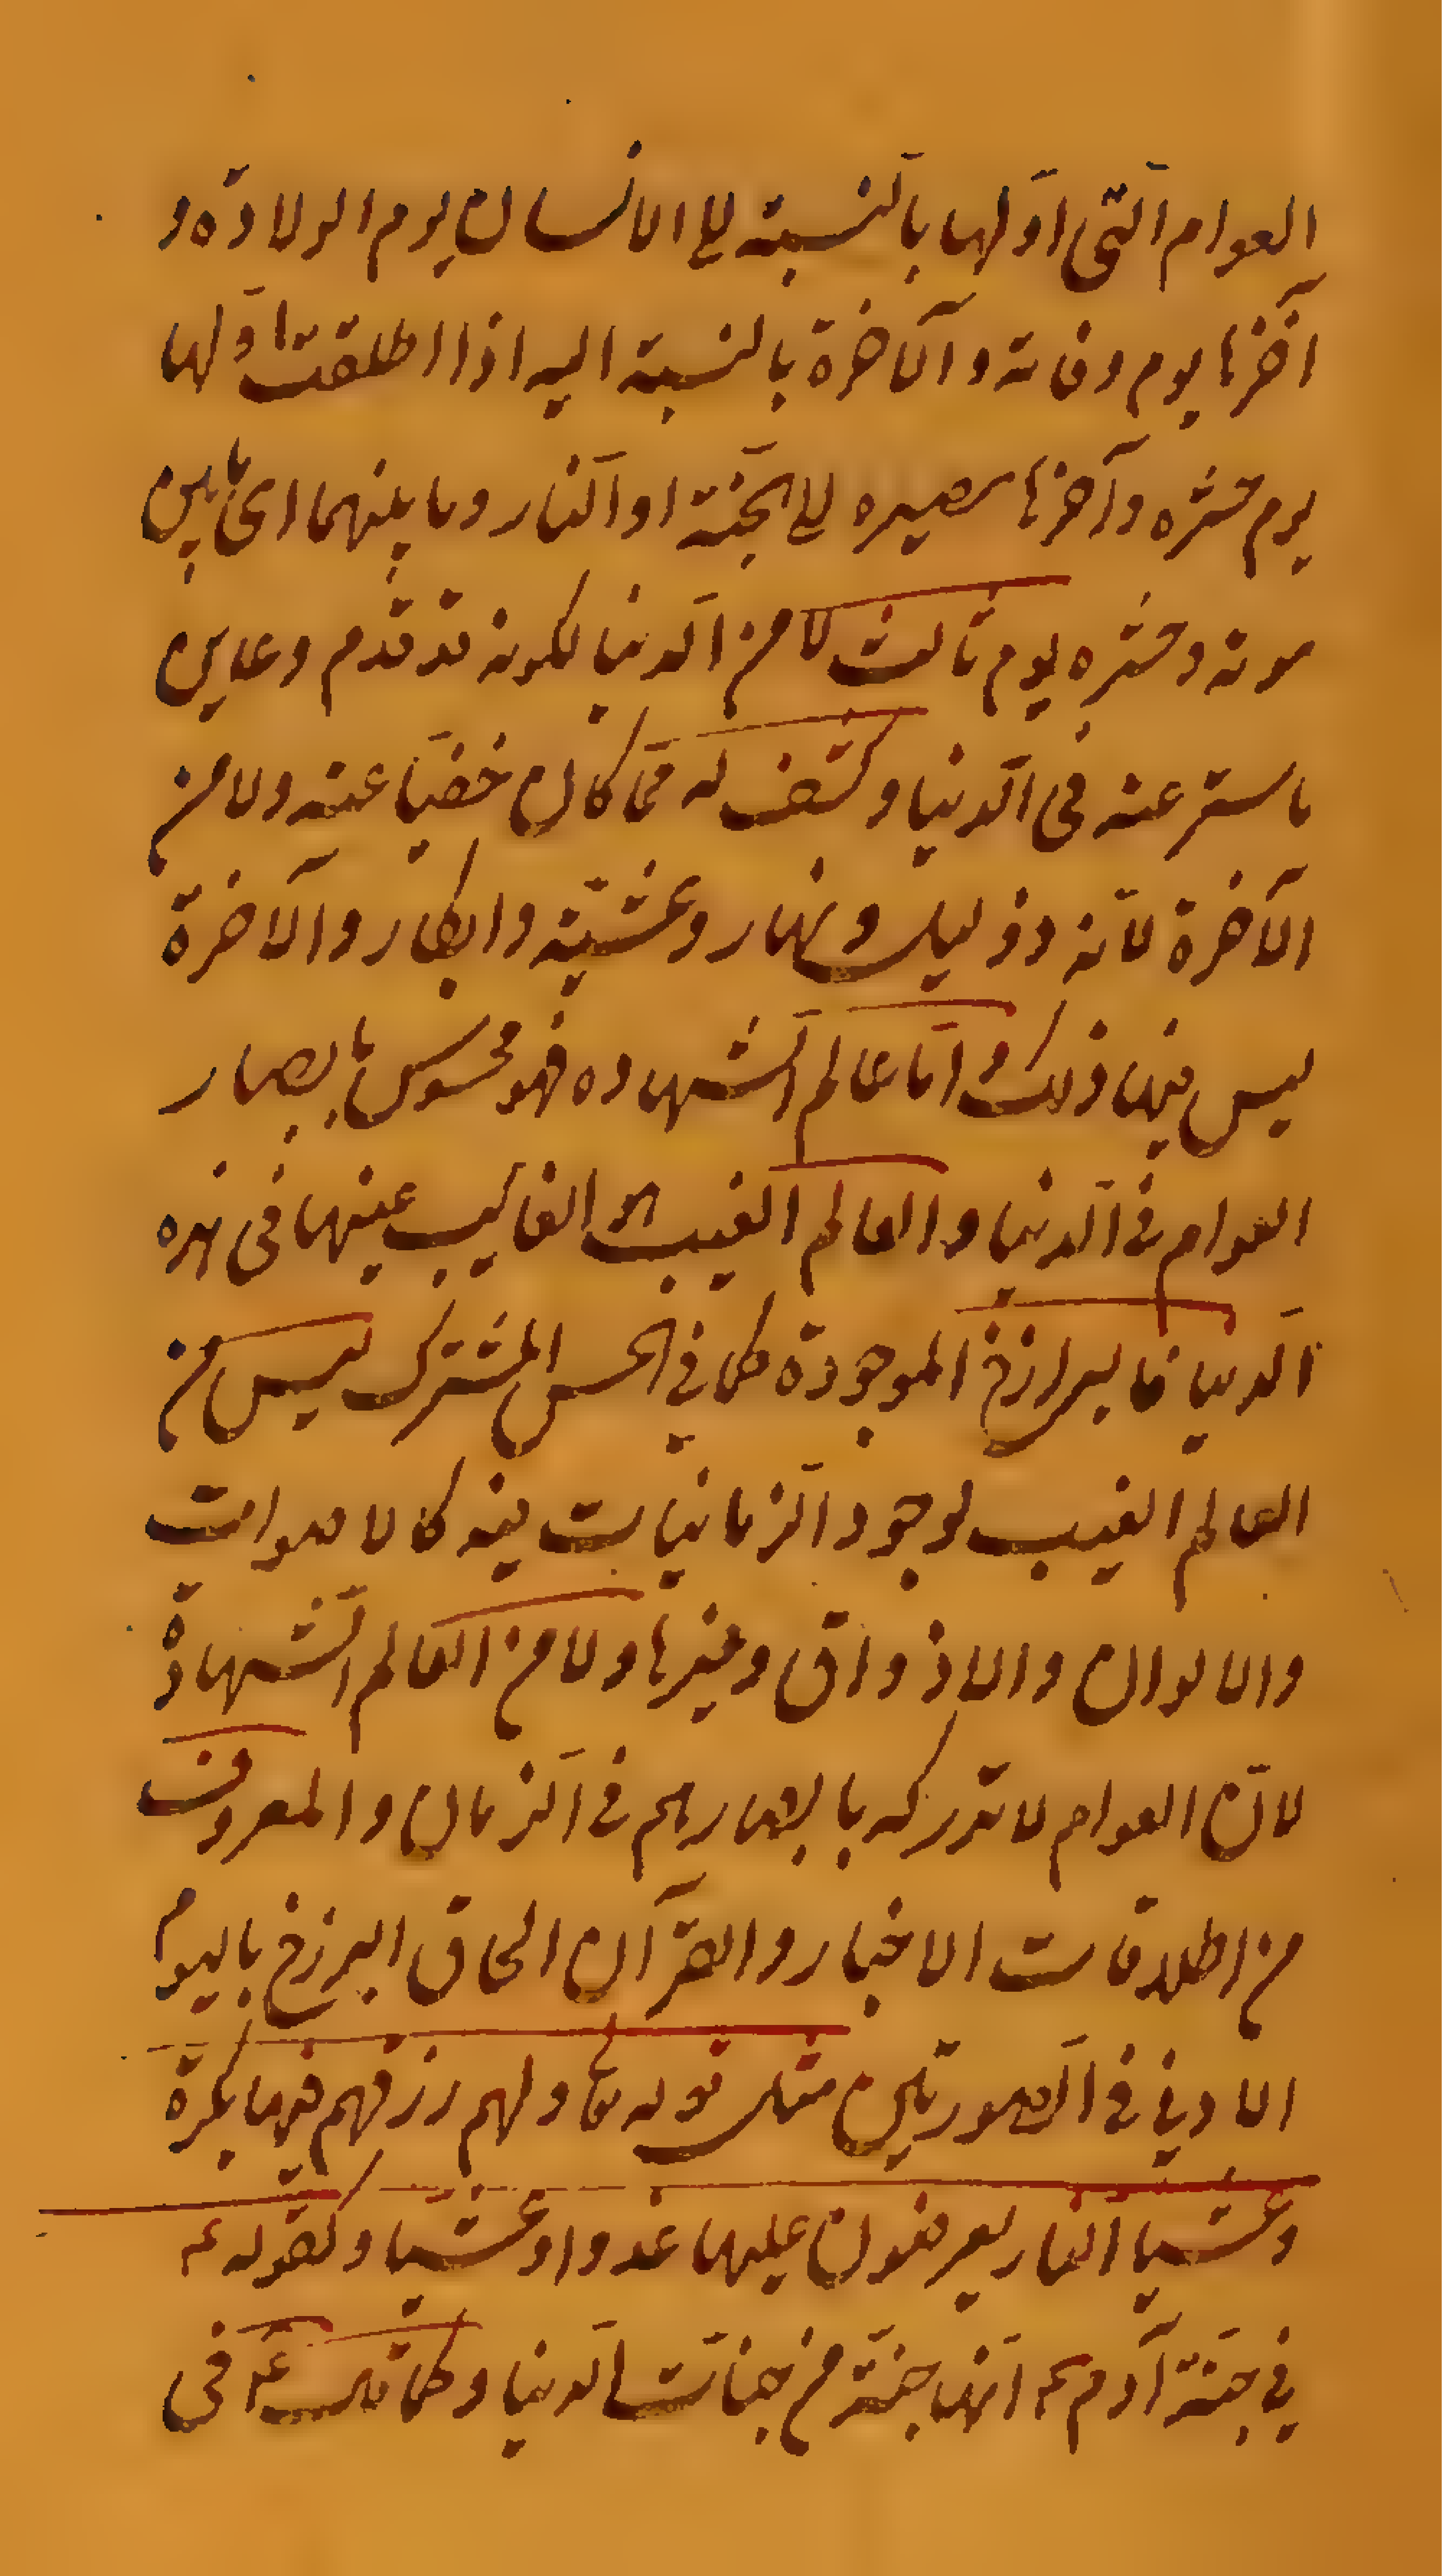 العوام الّتى اوّلها بالنّسبته الى الانسان يوم الولادة و
آخرها يوم وفاته و الآخرة بالنّسبته اليه اذا اطلقت اوّلها
يوم حشره و آخرها مصيره الى الجنّة او النّار و ما بينهما اى ما بين
موته و حشره يوم ثالث لا من الدّنيا لكونه قد تقدم و عاين
ما ستر عنه فى الدّنيا و كشف له ممّا كان خفيّا عنه و لا من
الآخرة لانّه ذو ليل و نهار و عشيّته و ابكار و الآخرة
ليس فيها ذلك و امّا عالم الشّهاده فهو محسوس بابصار
العوام فى الدّنيا و العالم الغيب الغايب عينها فى هذه
الدّنيا فالبرازخ الموجودة كما فى الحس المشترك ليس من
العالم الغيب لوجود الزّمانيات فيه كالاصوات
و الالوان و الاذواق و غيرها و لا من العالم الشّهادة
لانّ العوام لا تدركه بابصارهم فى الزّمان و المعروف
من اطلاقات الاخبار و القرآن الحاق البرزخ باليوم
الادنى فى الصّورتين مثل قوله تعا و لهم رزقهم فيها بكرة
و عشيا النّار يعرضون عليها غدوا و عشيا و كقوله ع
فى جنّة آدم ع انّها جنّة من جنات الدّنيا و كما قال ع فى